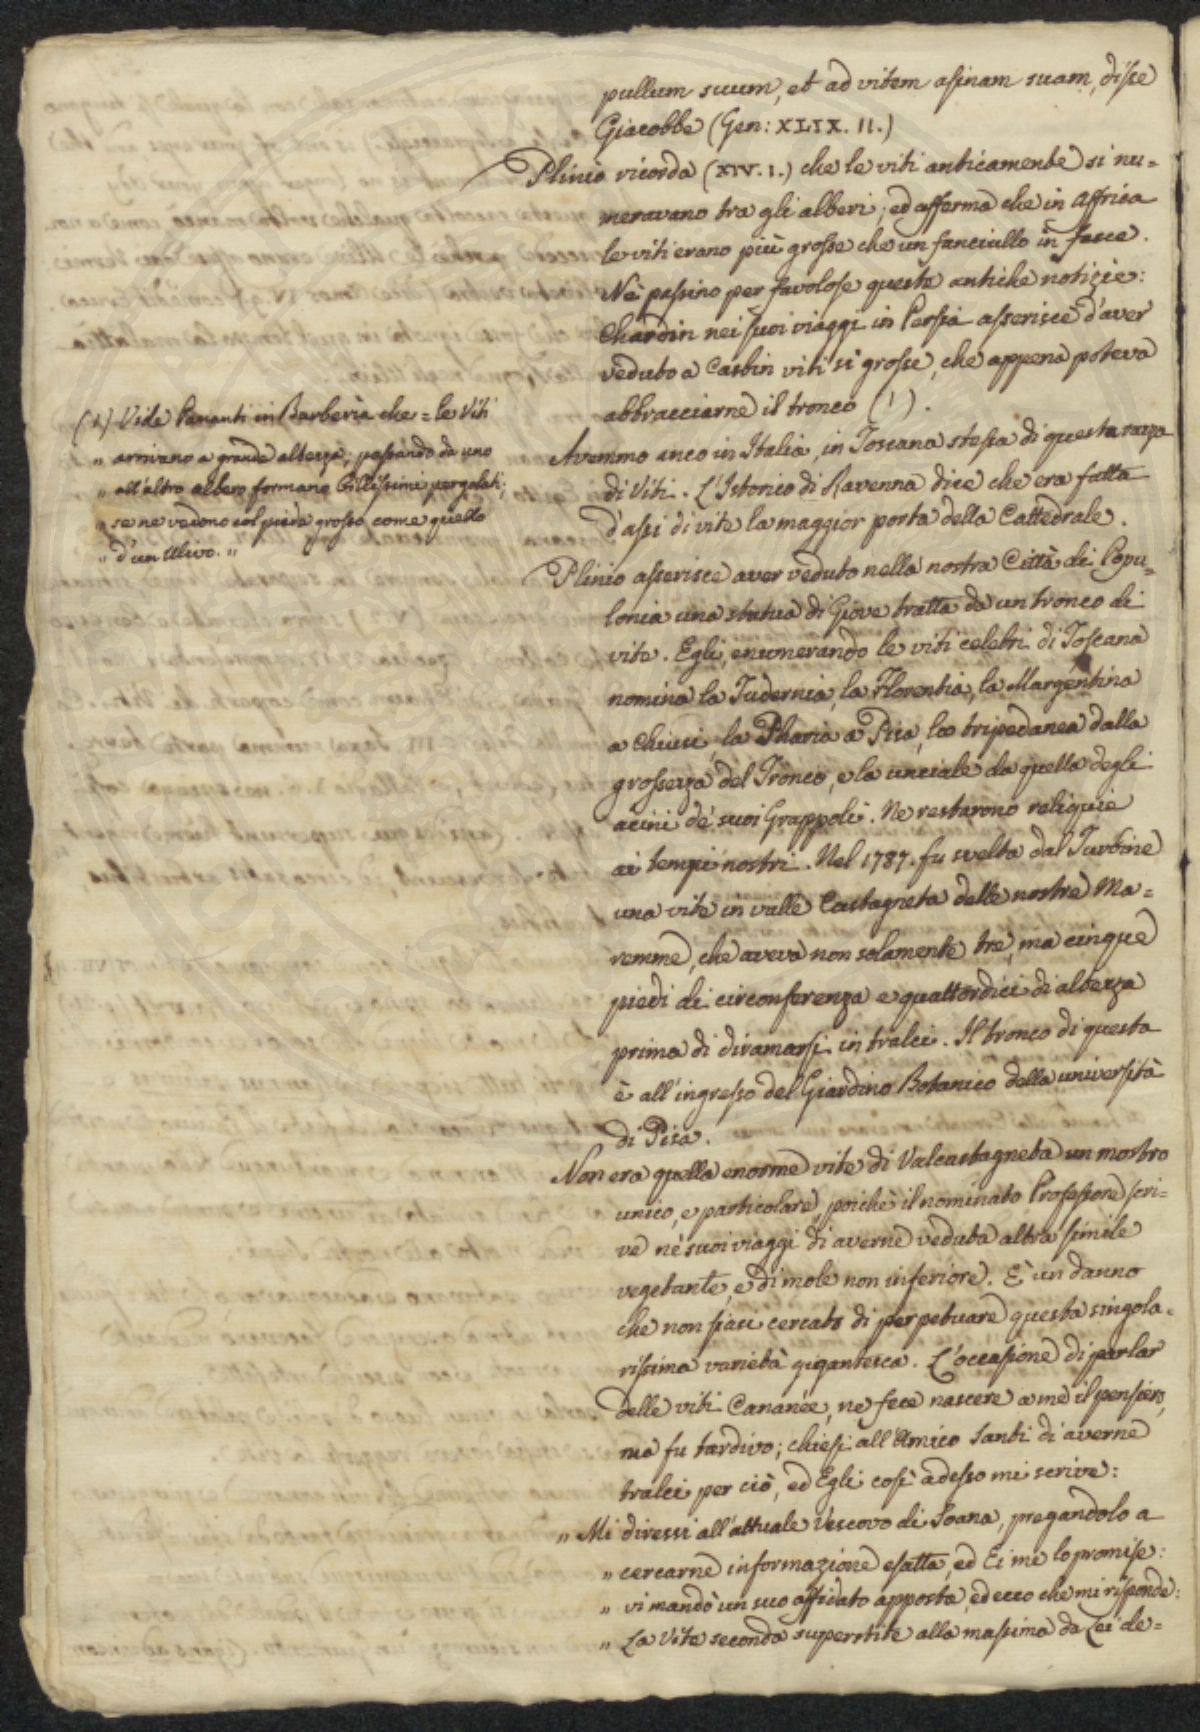 pullum suum, et ad vitem asinam suam, disse
Giacobbe (Gen: XLIX. 11.)
Plinio ricorda (XIV. 1.) che le viti anticamente si nu=
meravano tra gli alberi; ed afferma che in Affrica
le viti erano più grosse che un fanciullo in fasce.
Nè passino per favolose queste antiche notizie:
Chardin nei suoi viaggi in Persia asserisce d'aver
veduto a Casbin viti sì grosse, che appena poteva
abbracciarne il tronco (1).
Avemmo anco in Italia, in Toscana stessa di questa razza
di Viti. L'Istorico di Ravenna dice che era fatta
d'assi di vite la maggior porta della Cattedrale.
Plinio asserisce aver veduto nella nostra Città di Popu=
lonia una statua di Giove tratta da un tronco di
vite. Egli, enumerando le viti celebri di Toscana
nomina la Tudernia, la Florentia, la Margentina
a Chiusi, la Pharia a Pisa, la tripedanea dalla
grossezza del Tronco, e la unciale da quella degli
acini de' suoi Grappoli. Ne restarono reliquie
ai tempi nostri. Nel 1787. fu svelta dal Turbine
una vite in valle Castagneta delle nostre Ma=
remme, che aveva non solamente tre, ma cinque
piedi di circonferenza e quattordici di altezza
prima di diramarsi in tralci. Il tronco di questa
è all'ingresso del Giardino Botanico della università
di Pisa.
Non era quella enorme vite di Valcastagneta un mostro
unico, e particolare, poichè il nominato Professore scri=
ve ne' suoi viaggi di averne veduta altra simile
vegetante, e di mole non inferiore. È un danno
che non siasi cercato di perpetuare questa singola=
rissima varietà gigantesca. L'occasione di parlar
delle viti Cananèe, ne fece nascere a me il pensiero,
ma fu tardivo; chiesi all'Amico Santi di averne
tralci per ciò, ed Egli così adesso mi scrive:
" Mi diressi all'attuale Vescovo di Soana, pregandolo a
" cercarne informazione esatta, ed Ei me lo promise:
" vi mandò un suo affidato apposta, ed ecco che mi risponde:
" La Vite seconda superstite alla massima da Lei de=
(1) Vide Pananti in Barberìa che = le Viti
" arrivano a grande altezza, passando da uno
" all'altro albero formano bellissimi pergolati;
" se ne vedono col piede grosso come quello
" d'un Ulivo. "